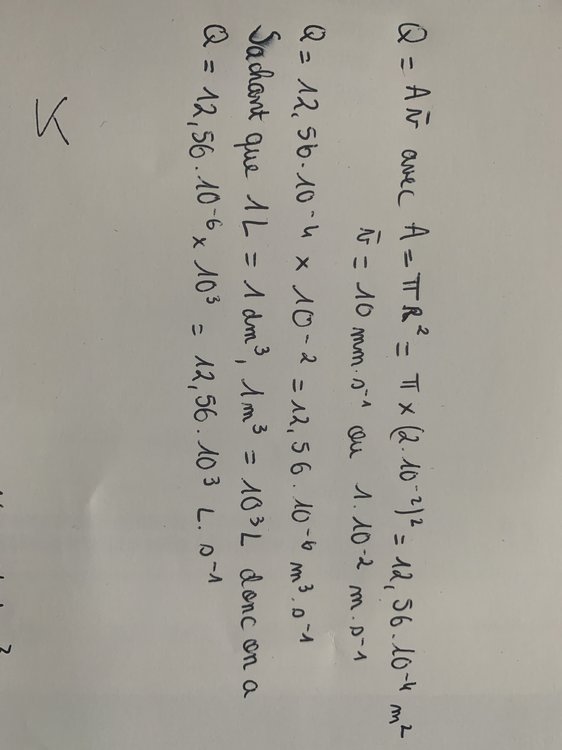 Q = A v̄ avec A = πR² = π × (2.10⁻²)² = 12,56.10⁻⁴ m²
v̄ = 10 mm.s⁻¹ ou 1.10⁻² m.s⁻¹
Q = 12,56.10⁻⁴ × 10⁻² = 12,56.10⁻⁶ m³.s⁻¹
Sachant que 1L = 1dm³, 1m³ = 10³L donc on a
Q = 12,56.10⁻⁶ × 10³ = 12,56.10³ L.s⁻¹